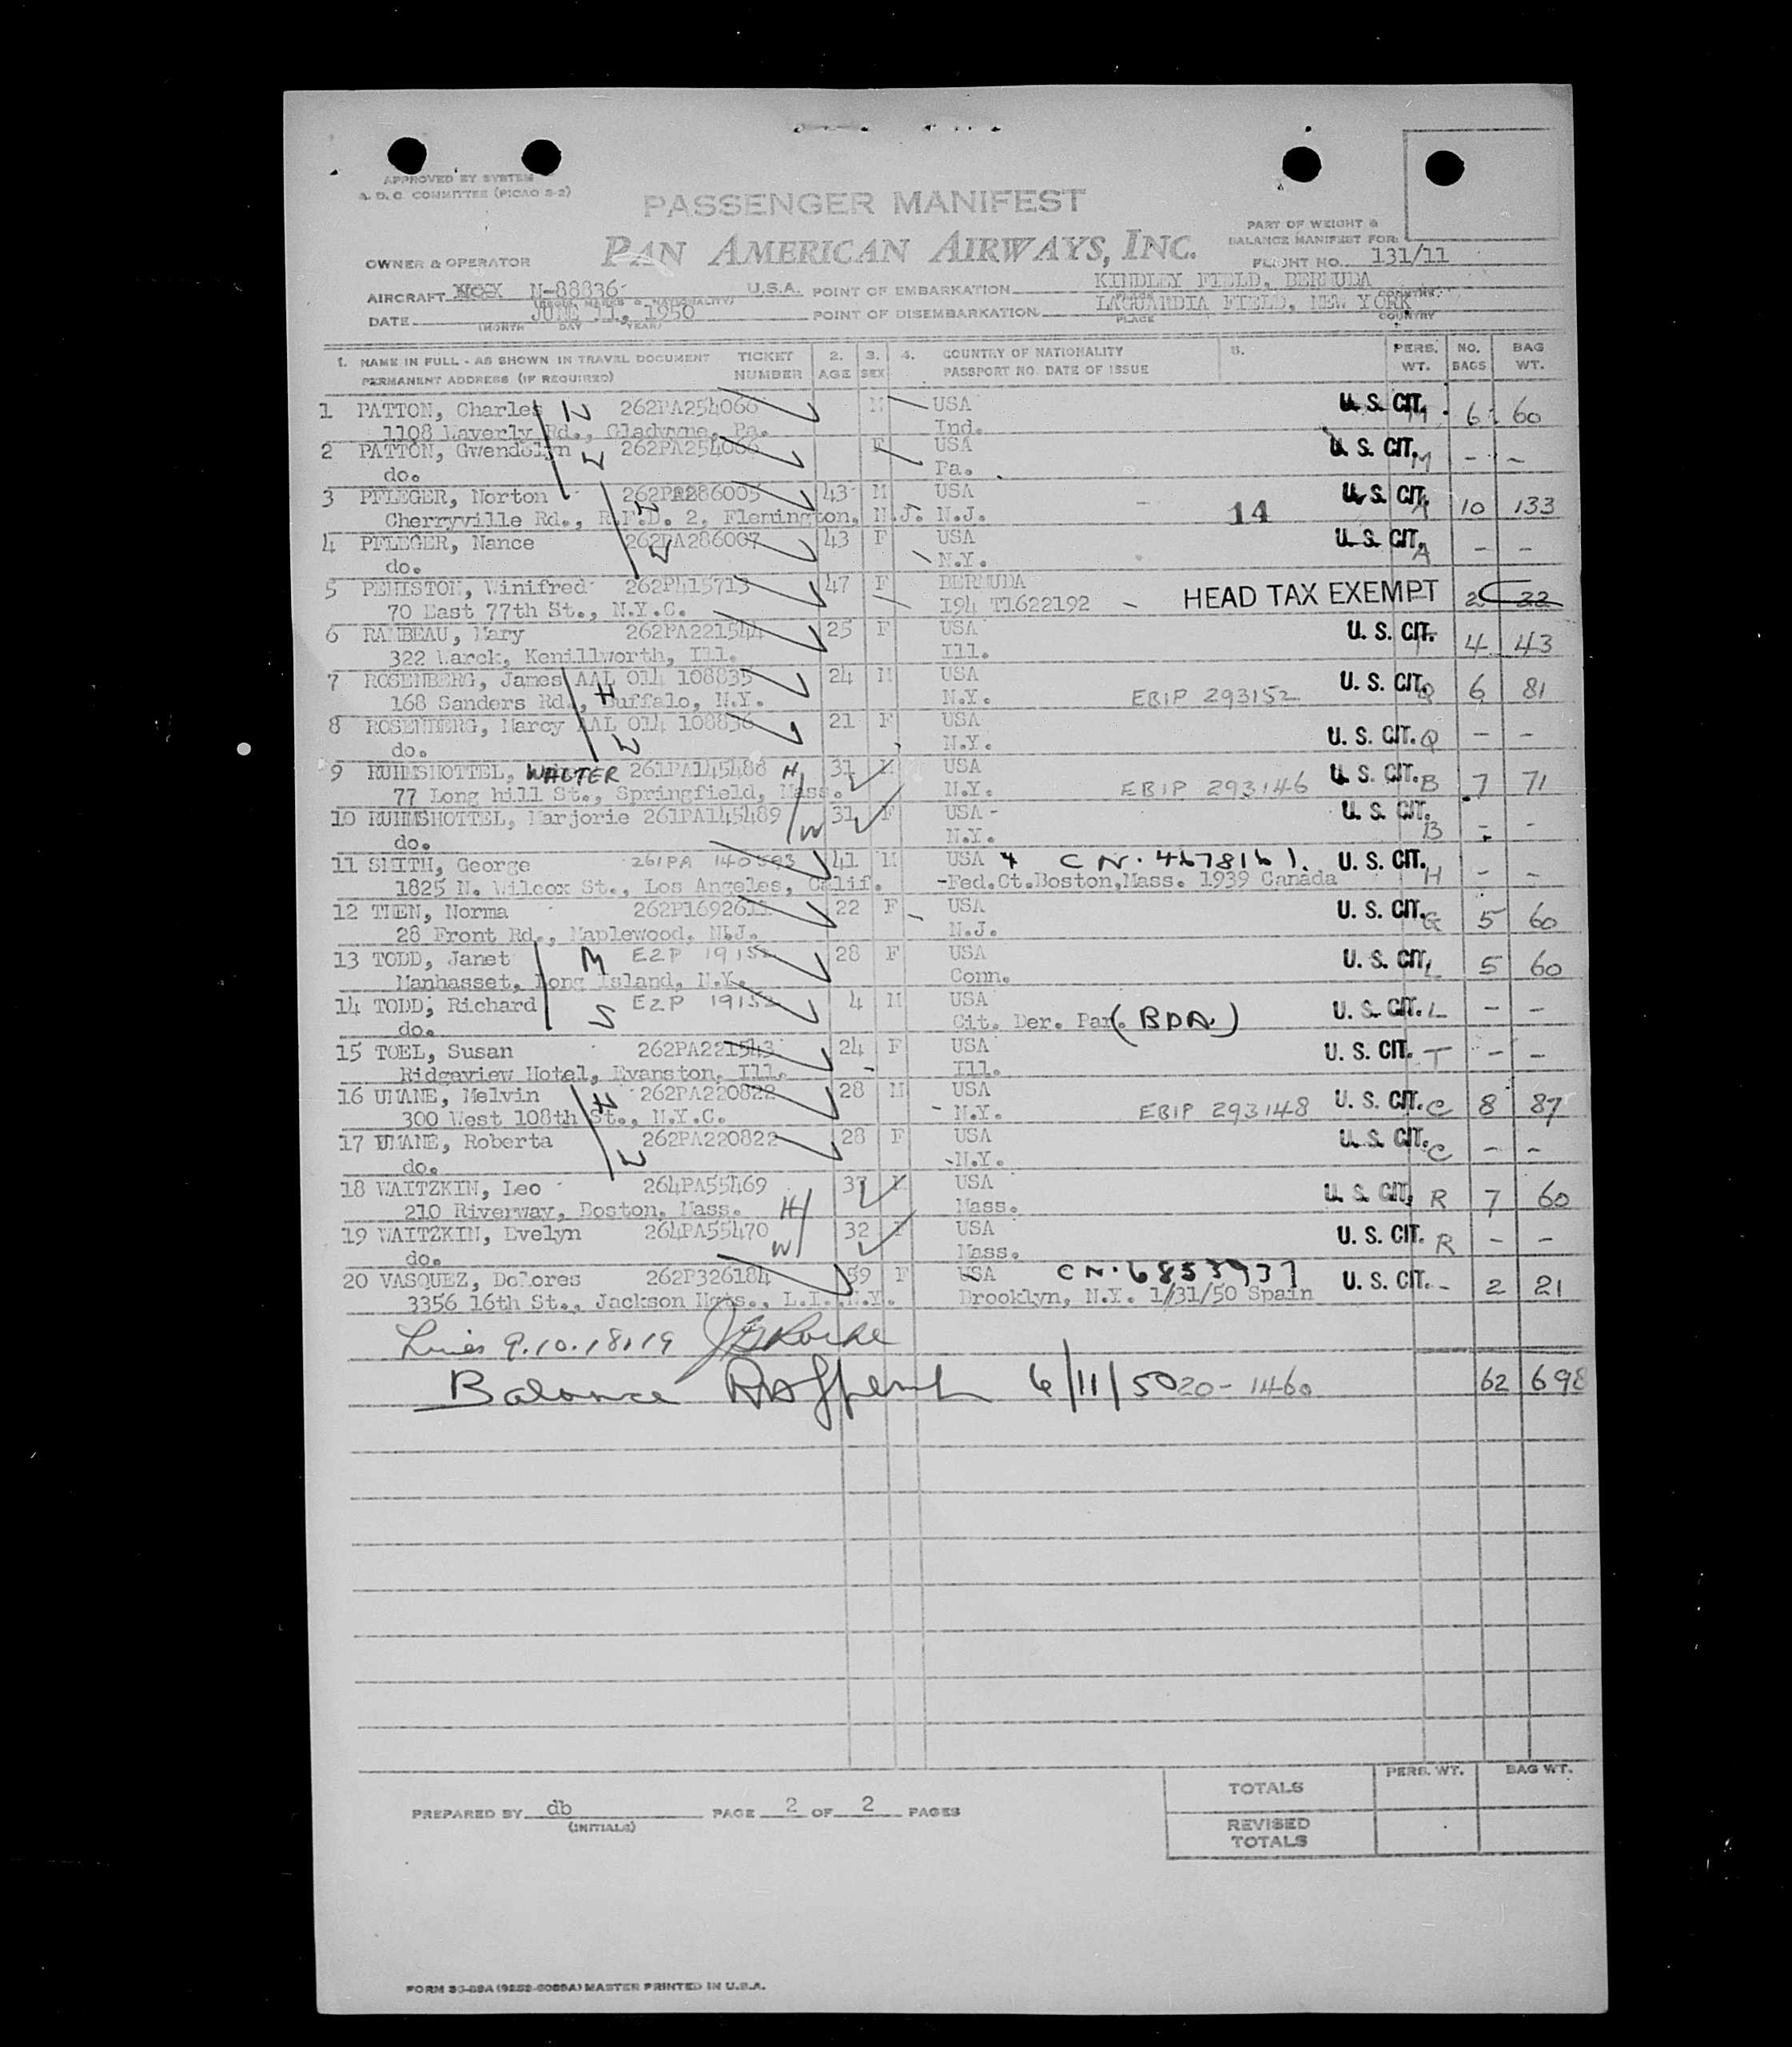 APPROVED BY SYSTEM
A. D. C. COMMITTEE (PICAO S-2)
PASSENGER MANIFEST
PART OF WEIGHT &
BALANCE MANIFEST FOR:
PAN AMERICAN AIRWAYS, INC.
OWNER & OPERATOR
FLIGHT NO. 131/11
AIRCRAFT N-88836 U.S.A. POINT OF EMBARKATION KINDLEY FIELD, BERMUDA
(REGIS. MARKS & NATIONALITY) PLACE COUNTRY
DATE JUNE 11, 1950 POINT OF DISEMBARKATION LAGUARDIA FIELD, NEW YORK
(MONTH DAY YEAR) PLACE COUNTRY
1. NAME IN FULL - AS SHOWN IN TRAVEL DOCUMENT TICKET 2. 3. 4. COUNTRY OF NATIONALITY 5. PERS. NO. BAG
PERMANENT ADDRESS (IF REQUIRED) NUMBER AGE SEX PASSPORT NO. DATE OF ISSUE WT. BAGS WT.
1 PATTON, Charles 262PA254066 M USA U. S. CIT. M 6 60
1108 Waverly Rd., Gladwyne, Pa. Ind.
2 PATTON, Gwendolyn W 262PA254066 F USA U. S. CIT. M - -
do. Pa.
3 PFLEGER, Norton 262PA286005 43 M USA U. S. CIT. A 10 133
Cherryville Rd., R.F.D. 2, Flemington, N.J. N.J. 14
4 PFLEGER, Nance W 262PA286007 43 F USA U. S. CIT. A - -
do. N.Y.
5 PENISTON, Winifred 262P415713 47 F BERMUDA HEAD TAX EXEMPT 2 22
70 East 77th St., N.Y.C. I94 T1622192
6 RAMBEAU, Mary 262PA221544 25 F USA U. S. CIT. T 4 43
322 Warck, Kenillworth, Ill. Ill.
7 ROSENBERG, James AAL 014 108835 24 M USA U. S. CIT. Q 6 81
168 Sanders Rd., H Buffalo, N.Y. N.Y. EBIP 293152
8 ROSENBERG, Marcy AAL 014 108836 21 F USA U. S. CIT. Q - -
do. W N.Y.
9 RUHMSHOTTEL, WALTER 261PA145488 H 31 M USA U. S. CIT. B 7 71
77 Long hill St., Springfield, Mass. N.Y. EBIP 293146
10 RUHMSHOTTEL, Marjorie 261PA145489 W 31 F USA U. S. CIT. B - -
do. N.Y.
11 SMITH, George 261PA 140593 41 M USA CN. 4678161. U. S. CIT. H - -
1825 N. Wilcox St., Los Angeles, Calif. -Fed.Ct.Boston,Mass. 1939 Canada
12 THEN, Norma 262P1692611 22 F USA U. S. CIT. G 5 60
28 Front Rd., Maplewood, N.J. N.J.
13 TODD, Janet M E2P 19152 28 F USA U. S. CIT. L 5 60
Manhasset, Long Island, N.Y. Conn.
14 TODD, Richard S E2P 19152 4 M USA U. S. CIT. L - -
do. Cit. Der. Par. (BDA.)
15 TOEL, Susan 262PA221543 24 F USA U. S. CIT. T - -
Ridgeview Hotel, Evanston, Ill. Ill.
16 UMANE, Melvin 262PA220822 28 M USA U. S. CIT. C 8 87
300 West 108th St., N.Y.C. H N.Y. EBIP 293148
17 UMANE, Roberta 262PA220822 28 F USA U. S. CIT. C - -
do. W N.Y.
18 WAITZKIN, Leo 264PA55469 37 M USA U. S. CIT. R 7 60
210 Riverway, Boston, Mass. H Mass.
19 WAITZKIN, Evelyn 264PA55470 32 F USA U. S. CIT. R - -
do. W Mass.
20 VASQUEZ, Dolores 262P326184 59 F USA CN. 6853937 U. S. CIT. - 2 21
3356 16th St., Jackson Hgts., L.I., N.Y. Brooklyn, N.Y. 1/31/50 Spain
Lines 9.10.18.19
Balance 6/11/50 20-1460 62 698
PERS. WT. BAG WT.
TOTALS
PREPARED BY db PAGE 2 OF 2 PAGES
(INITIALS)
REVISED
TOTALS
MASTER PRINTED IN U.S.A.